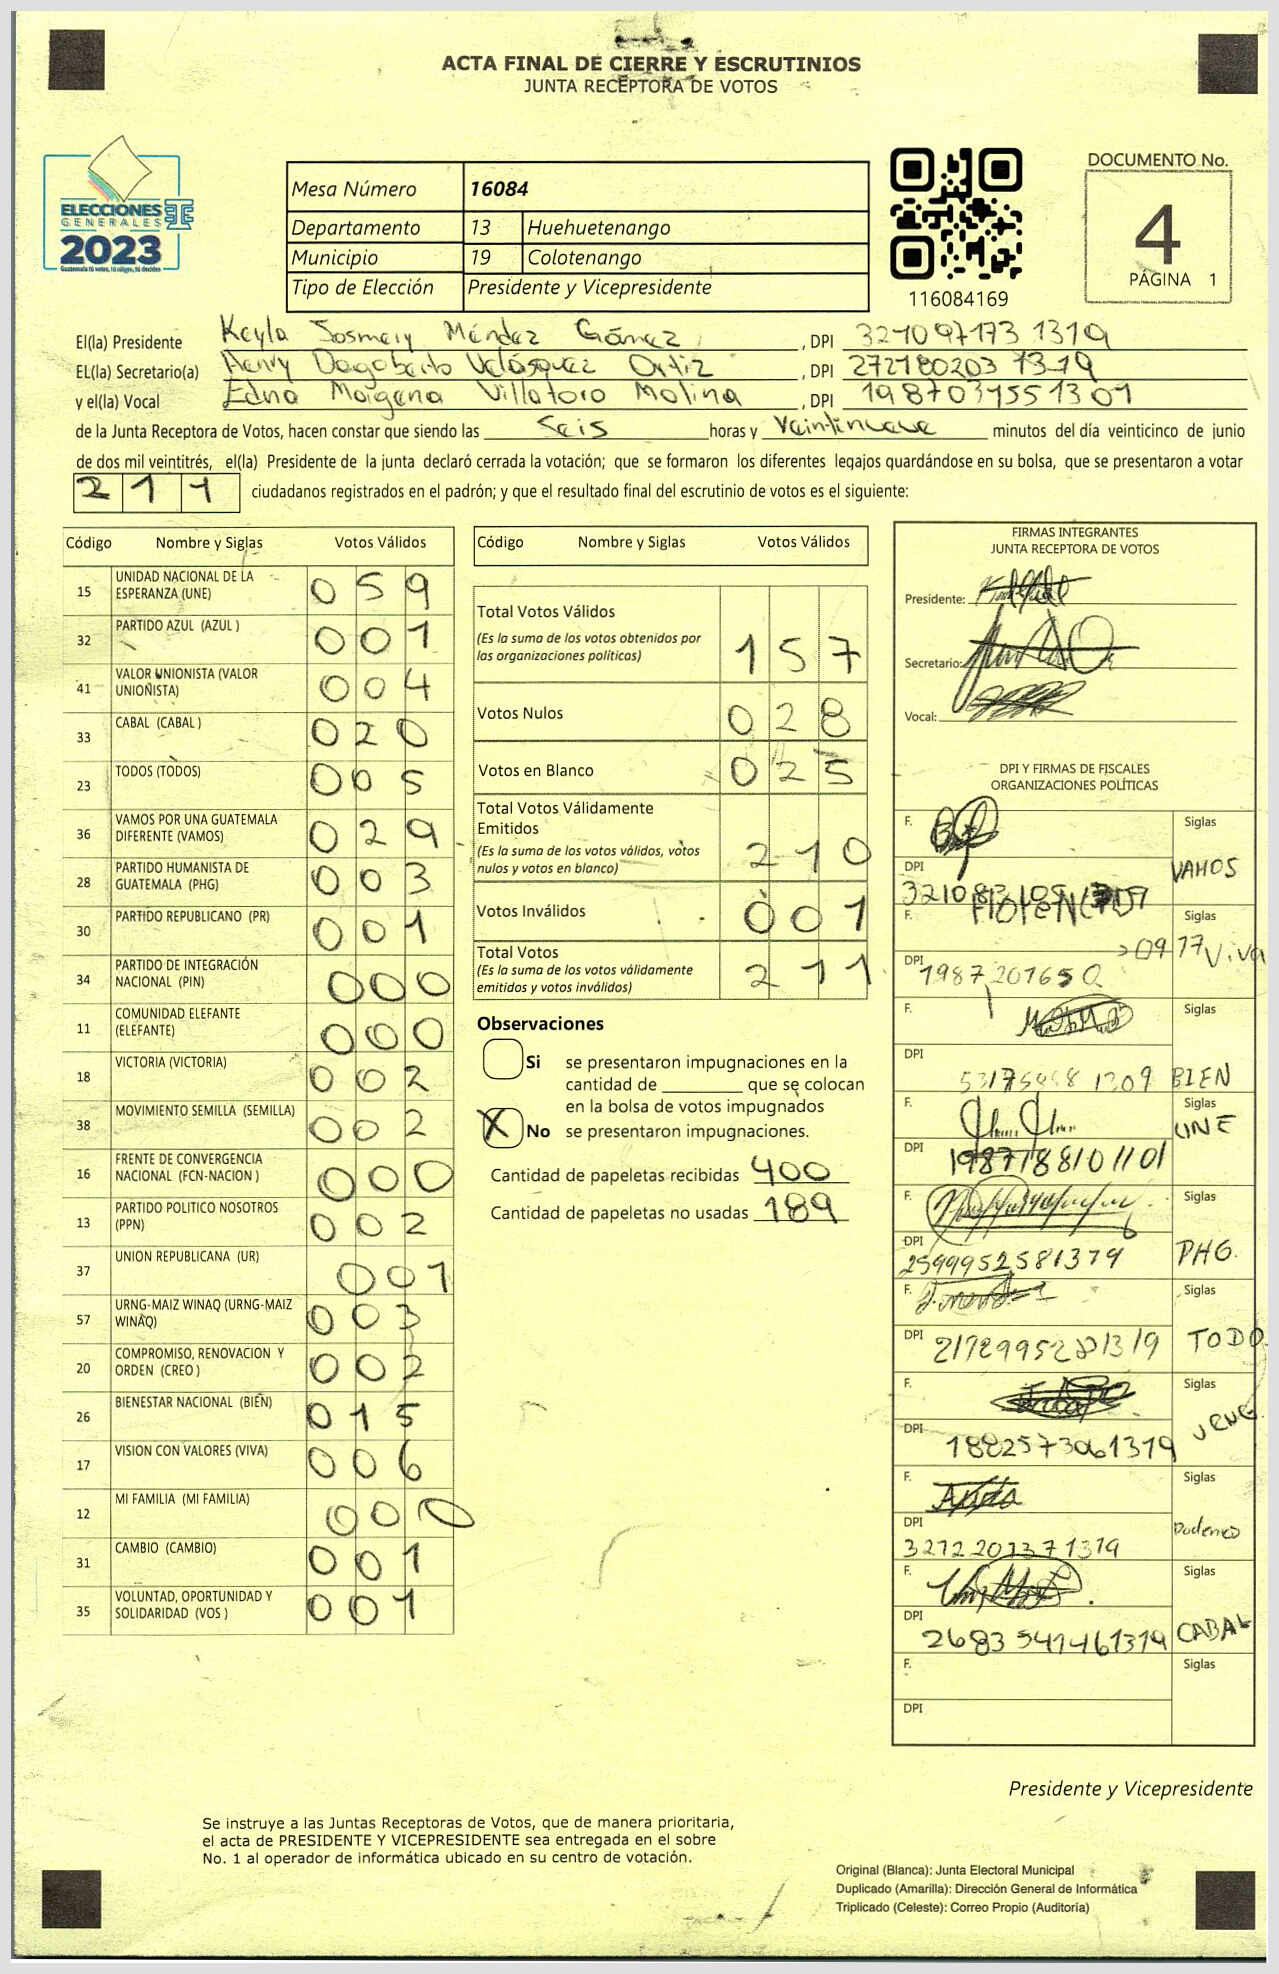 ACTA FINAL DE CIERRE Y ESCRUTINIOS
JUNTA RECEPTORA DE VOTOS
ELECCIONES
GENERALES
2023
Mesa Número 16084
Departamento 13 Huehuetenango
Municipio 19 Colotenango
Tipo de Elección Presidente y Vicepresidente
116084169
DOCUMENTO No.
4
PÁGINA 1
El(la) Presidente Keyla Josmery Méndez Gómez, DPI 321097173 1319
EL(la) Secretario(a) Henry Dagoberto Velásquez Ortiz, DPI 272180203 1319
y el(la) Vocal Edna Maigena Villatoro Molina, DPI 1987039551301
de la Junta Receptora de Votos, hacen constar que siendo las Seis horas y Veintinueve minutos del día veinticinco de junio
de dos mil veintitrés, el(la) Presidente de la junta declaró cerrada la votación; que se formaron los diferentes legajos quardándose en su bolsa, que se presentaron a votar
211 ciudadanos registrados en el padrón; y que el resultado final del escrutinio de votos es el siguiente:
Código Nombre y Siglas Votos Válidos
15 UNIDAD NACIONAL DE LA ESPERANZA (UNE) 059
32 PARTIDO AZUL (AZUL ) 001
41 VALOR UNIONISTA (VALOR UNIONISTA) 004
33 CABAL (CABAL ) 020
23 TODOS (TODOS) 005
36 VAMOS POR UNA GUATEMALA DIFERENTE (VAMOS) 029
28 PARTIDO HUMANISTA DE GUATEMALA (PHG) 003
30 PARTIDO REPUBLICANO (PR) 001
34 PARTIDO DE INTEGRACIÓN NACIONAL (PIN) 000
11 COMUNIDAD ELEFANTE (ELEFANTE) 000
18 VICTORIA (VICTORIA) 002
38 MOVIMIENTO SEMILLA (SEMILLA) 002
16 FRENTE DE CONVERGENCIA NACIONAL (FCN-NACION ) 000
13 PARTIDO POLITICO NOSOTROS (PPN) 002
37 UNION REPUBLICANA (UR) 001
57 URNG-MAIZ WINAQ (URNG-MAIZ WINAQ) 003
20 COMPROMISO, RENOVACION Y ORDEN (CREO ) 002
26 BIENESTAR NACIONAL (BIEN) 015
17 VISION CON VALORES (VIVA) 006
12 MI FAMILIA (MI FAMILIA) 000
31 CAMBIO (CAMBIO) 001
35 VOLUNTAD, OPORTUNIDAD Y SOLIDARIDAD (VOS ) 001
Código Nombre y Siglas Votos Válidos
Total Votos Válidos
(Es la suma de los votos obtenidos por las organizaciones políticas) 157
Votos Nulos 028
Votos en Blanco 025
Total Votos Válidamente Emitidos
(Es la suma de los votos válidos, votos nulos y votos en blanco) 210
Votos Inválidos 001
Total Votos
(Es la suma de los votos válidamente emitidos y votos inválidos) 211
Observaciones
Si se presentaron impugnaciones en la
cantidad de ________ que se colocan
en la bolsa de votos impugnados
X No se presentaron impugnaciones.
Cantidad de papeletas recibidas 400
Cantidad de papeletas no usadas 189
FIRMAS INTEGRANTES
JUNTA RECEPTORA DE VOTOS
Presidente:
Secretario:
Vocal:
DPI Y FIRMAS DE FISCALES
ORGANIZACIONES POLÍTICAS
F. Siglas
DPI VAMOS
F. Siglas
DPI 1987201650 0917 Viva
F. Siglas
DPI 1309 BIEN
F. Siglas
DPI 1987188101101 UNE
F. Siglas
DPI 2599952581319 PHG.
F. Siglas
DPI TODO
F. Siglas
DPI 1882573061319 URNG
F. Siglas
DPI 3212201371319
F. Siglas
DPI 2683541461319 CABAL
F. Siglas
DPI
Presidente y Vicepresidente
Se instruye a las Juntas Receptoras de Votos, que de manera prioritaria,
el acta de PRESIDENTE Y VICEPRESIDENTE sea entregada en el sobre
No. 1 al operador de informática ubicado en su centro de votación.
Original (Blanca): Junta Electoral Municipal
Duplicado (Amarilla): Dirección General de Informática
Triplicado (Celeste): Correo Propio (Auditoría)